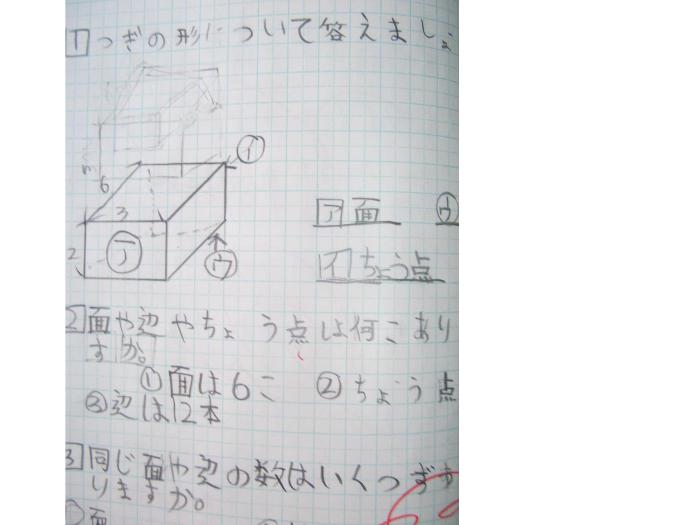 1 つぎの形について答えましょ
イ
6
3
2
ア
ウ
ア面 ウ
イちょう点
2 面や辺やちょう点は何こあり
すか。
①面は6こ ②ちょう点
③辺は12本
3 同じ面や辺の数はいくつずつ
りますか。
面